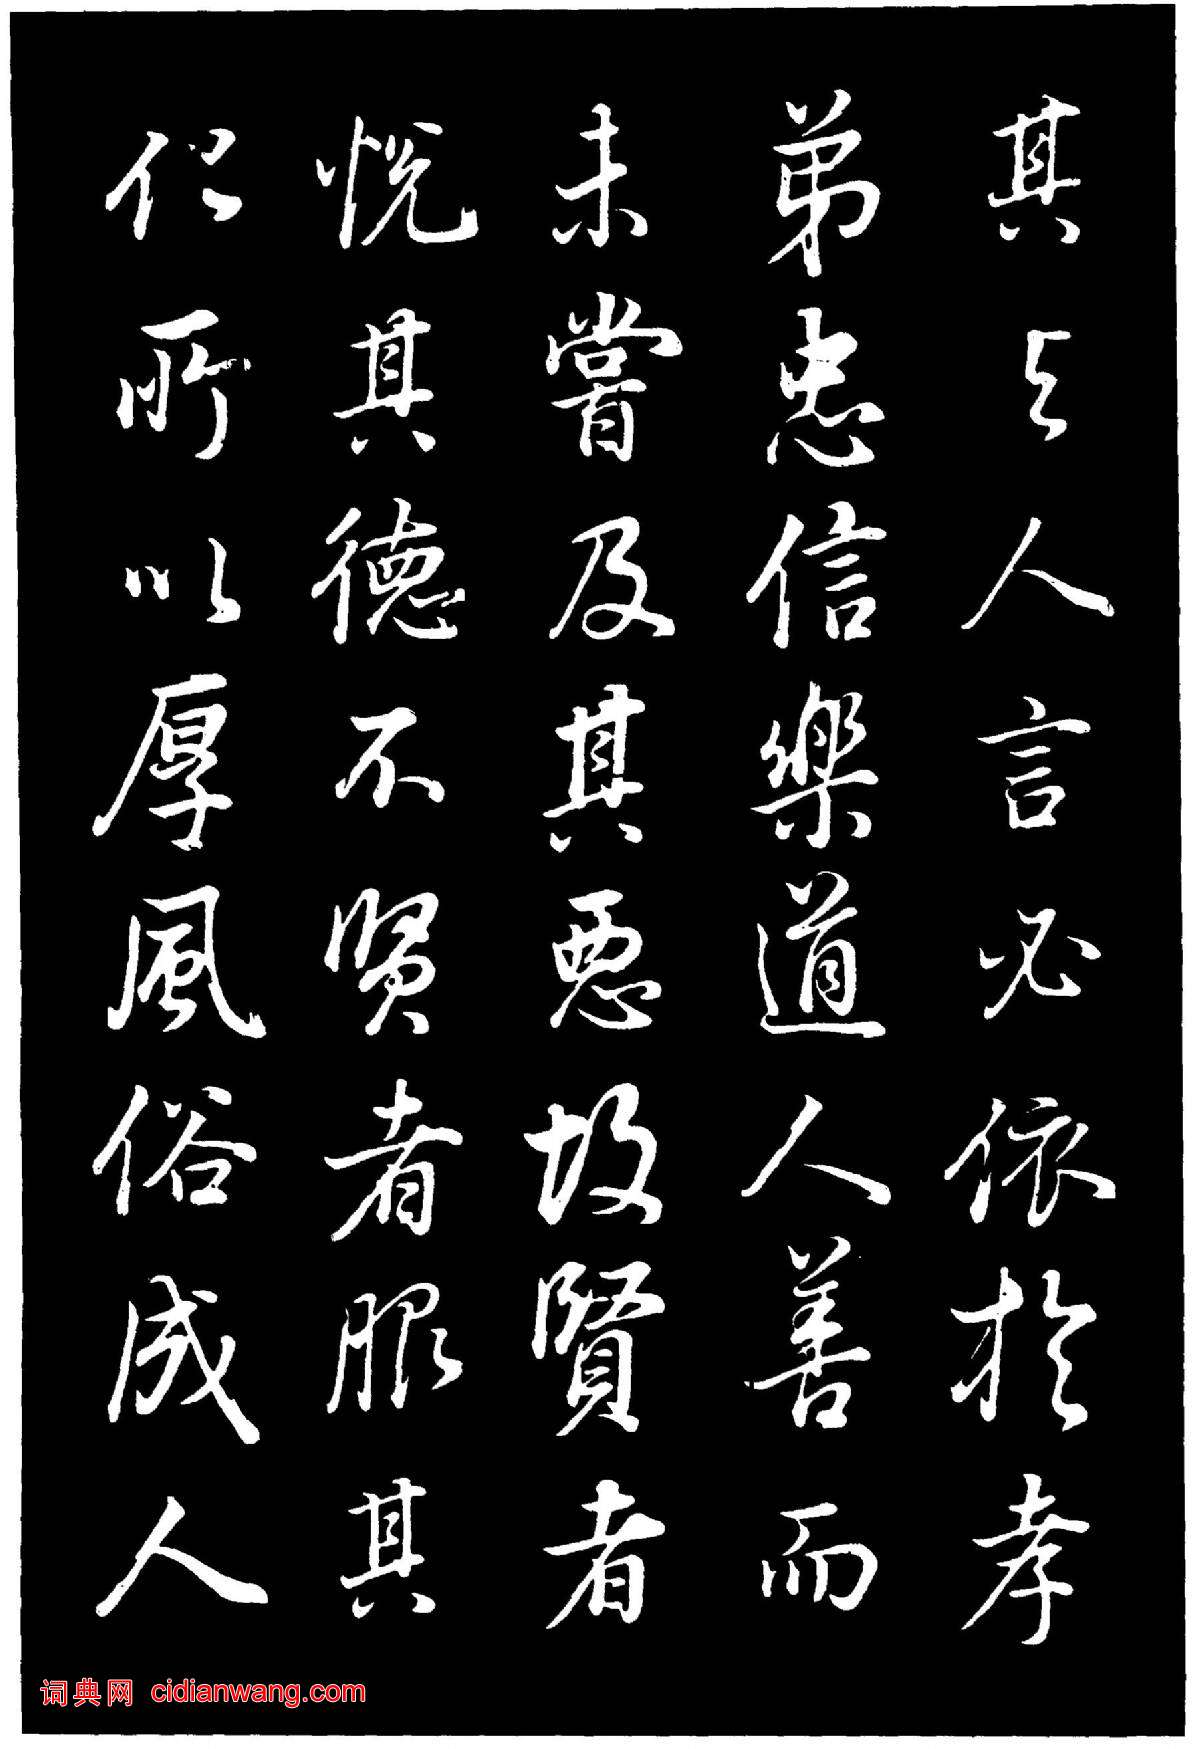 其与人言必依於孝
弟忠信樂道人善而
未嘗及其惡故賢者
悦其德不贤者服其
化所以厚風俗成人
词典网 cidianwang.com